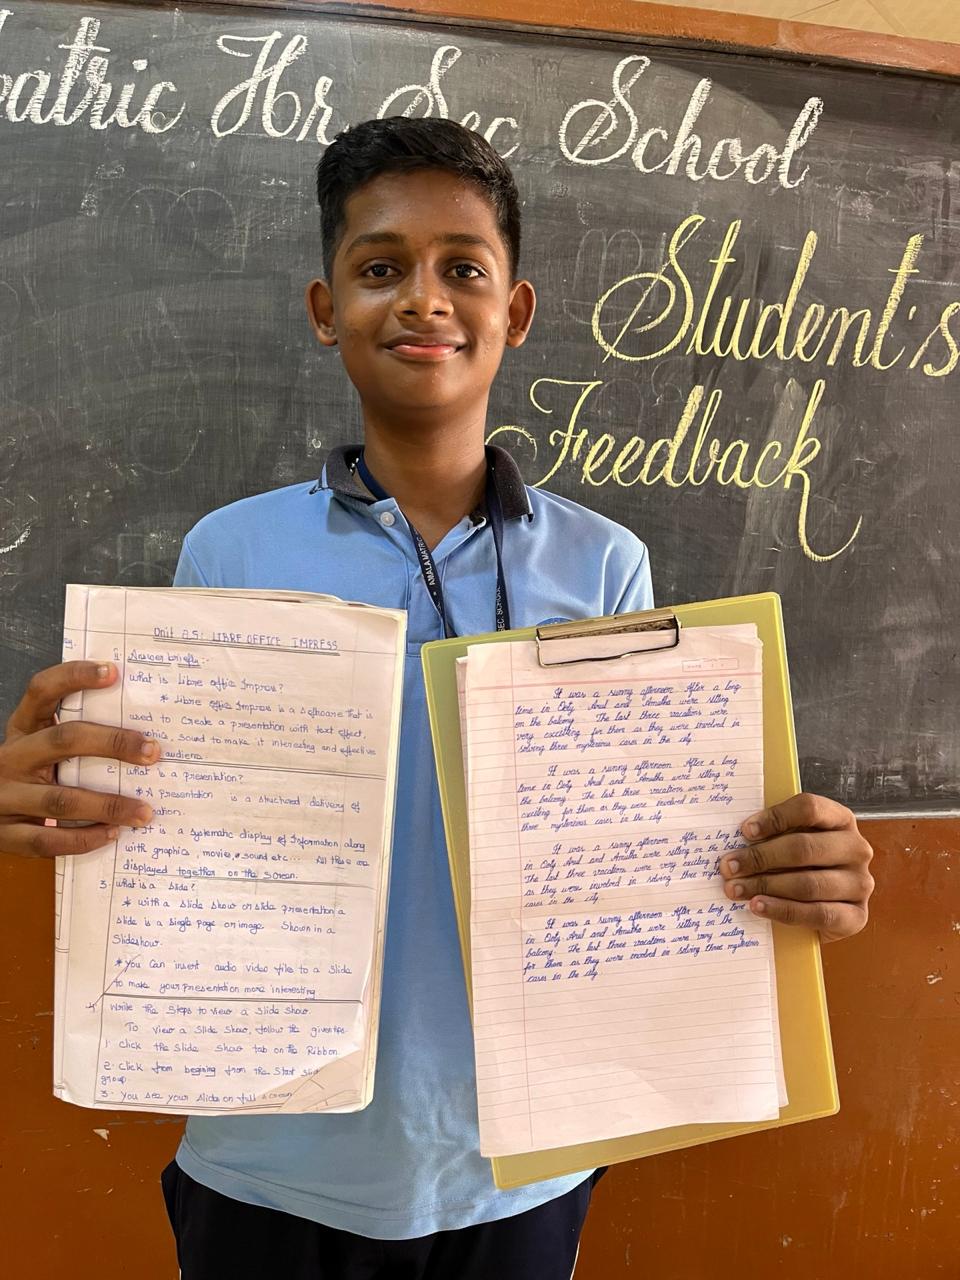 atric Hr Sec School
Student's
Feedback
AMALA MATRIC
SEC. SCHOOL
Unit 8.5: LIBRE OFFICE IMPRESS
II. Answer briefly:-
What is Libre offic Impress?
* Libre offic Impress is a Software that is
used to Create a presentation with text effect,
sound to make it interesting and effective
audienc.
2. What is a presentation?
* A presentation is a structured delivery of
mation.
* It is a systematic display of Information along
with graphics, movies, sound etc... All these are
displayed together on the Screen.
3. What is a Slide?
* with a Slide Show or slide presentation a
Slide is a Single page or image Shown in a
Slideshow.
* You Can insert audio video file to a Slide
to make your presentation more interesting
4. Write the Steps to view a Slide Show.
To view a Slide Show, follow the given
1. Click the Slide Show tab on the Ribbon.
2. Click from begining from the Start Slid
group.
3. You see your Slide on full screen
It was a sunny afternoon. After a long
time in Ooty Arul and Amutha were sitting
on the balcony. The last three vacations were
very exccitting for them as they were involved in
solving three mysterious cases in the city.
It was a sunny afternoon. After a long
time in Ooty Arul and Amutha were sitting on
the balcony. The last three vacations were very
exciting for them as they were involved in solving
three mysterious cases in the city
It was a sunny afternoon. After a long time
in Ooty Arul and Amutha were sitting on the balcony
The last three vacations were very exciting for
as they were involved in solving three
cases in the city.
It was a sunny afternoon. After a long time
in Ooty Arul and Amutha were sitting on the
balcony. The last three vacations were very exciting
for them as they were involved in solving three mysterious
cases in the city